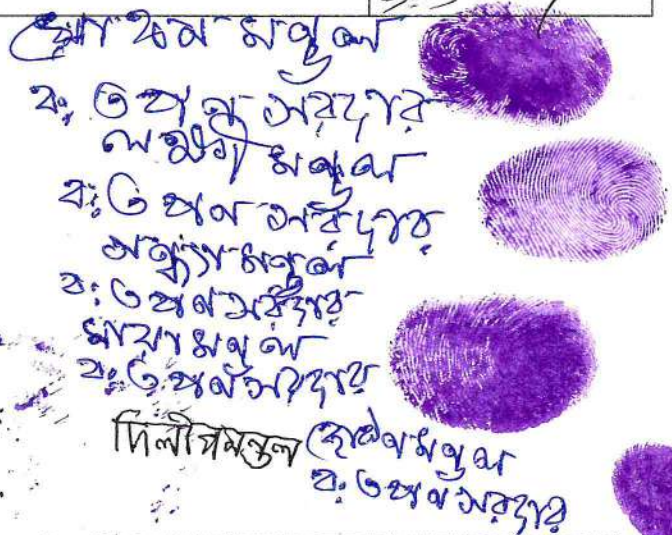 মণ্ডল
ব: তপন সরদার
লক্ষ্মী মণ্ডল
ব: তপন সরদার
সন্ধ্যা মণ্ডল
ব: তপন সরদার
মায়া মণ্ডল
ব: তপন সরদার
দিলীপ মন্ডল মণ্ডল
ব: তপন সরদার